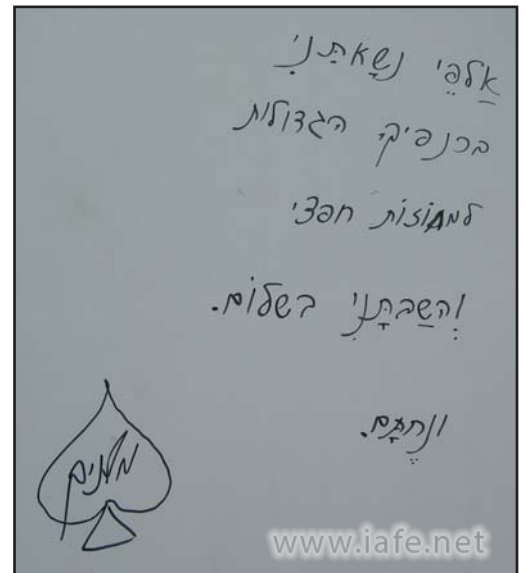 אַלפֵי נשָׂאתַנִי
בכנפיךָ הגדולות
למחוזות חפצי
וְהשַבתָנִי בשלום.
www.iafe.net